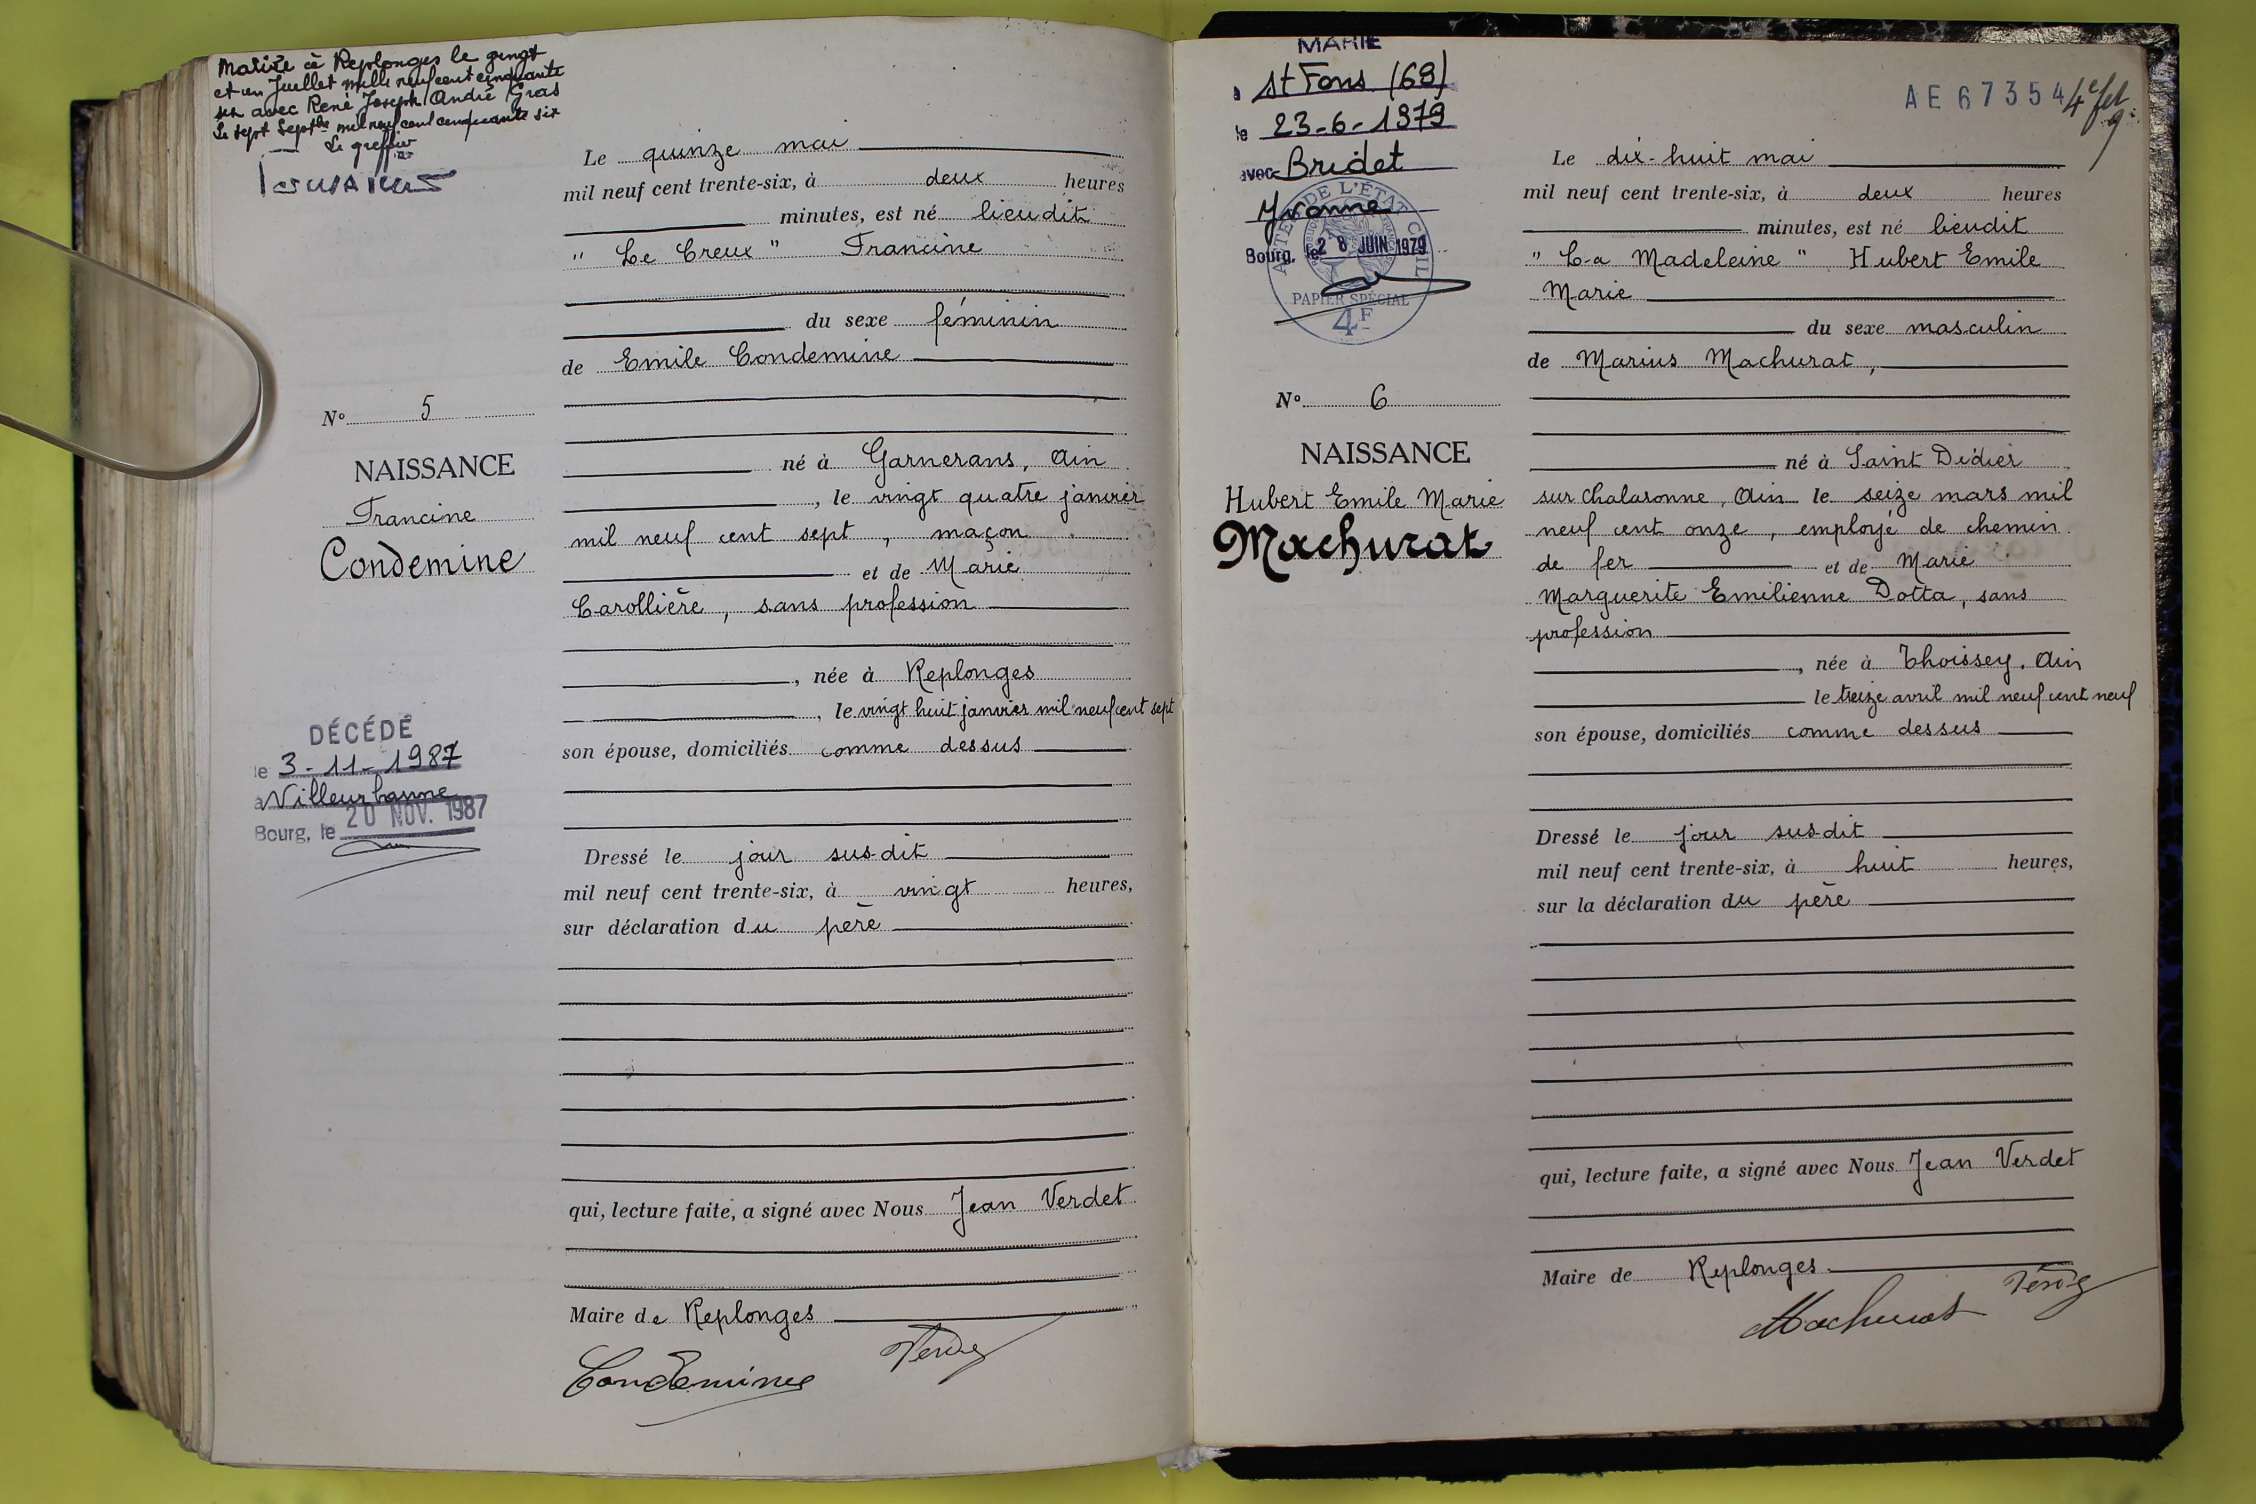 Mariée à Replonges le vingt
et un Juillet mille neuf cent cinquante
six avec René Joseph André Gras
Le sept Septbre mil neuf cent cinquante six
Le greffier
Le quinze mai
mil neuf cent trente-six, à deux heures
minutes, est né lieudit
" Le Creux " Francine
du sexe féminin
de Emile Condemine
N° 5
NAISSANCE
Francine
Condemine
né à Garnerans, Ain
, le vingt quatre janvier
mil neuf cent sept, maçon
et de Marie
Carollière, sans profession
, née à Replonges
, le vingt huit janvier mil neuf cent sept
son épouse, domiciliés comme dessus
DÉCÉDÉ
le 3-11-1987
à Villeurbanne
Bourg, le 20 NOV. 1987
Dressé le jour sus-dit
mil neuf cent trente-six, à vingt heures,
sur déclaration du père
qui, lecture faite, a signé avec Nous Jean Verdet
Maire de Replonges
Condemine
MARIE
à St Fons (69)
le 23-6-1979
avec Bridet
Yvonne
Bourg, le 28 JUIN 1979
PAPIER SPÉCIAL
4F
AE 67354
Le dix-huit mai
mil neuf cent trente-six, à deux heures
minutes, est né lieudit
" La Madeleine " Hubert Emile
Marie
du sexe masculin
de Marius Machurat,
N° 6
NAISSANCE
Hubert Emile Marie
Machurat
né à Saint Didier
sur Chalaronne, Ain le seize mars mil
neuf cent onze, employé de chemin
de fer et de Marie
Marguerite Emilienne Dotta, sans
profession
, née à Thoissey, Ain
le treize avril mil neuf cent neuf
son épouse, domiciliés comme dessus
Dressé le jour sus-dit
mil neuf cent trente-six, à huit heures,
sur la déclaration du père
qui, lecture faite, a signé avec Nous Jean Verdet
Maire de Replonges
Machurat